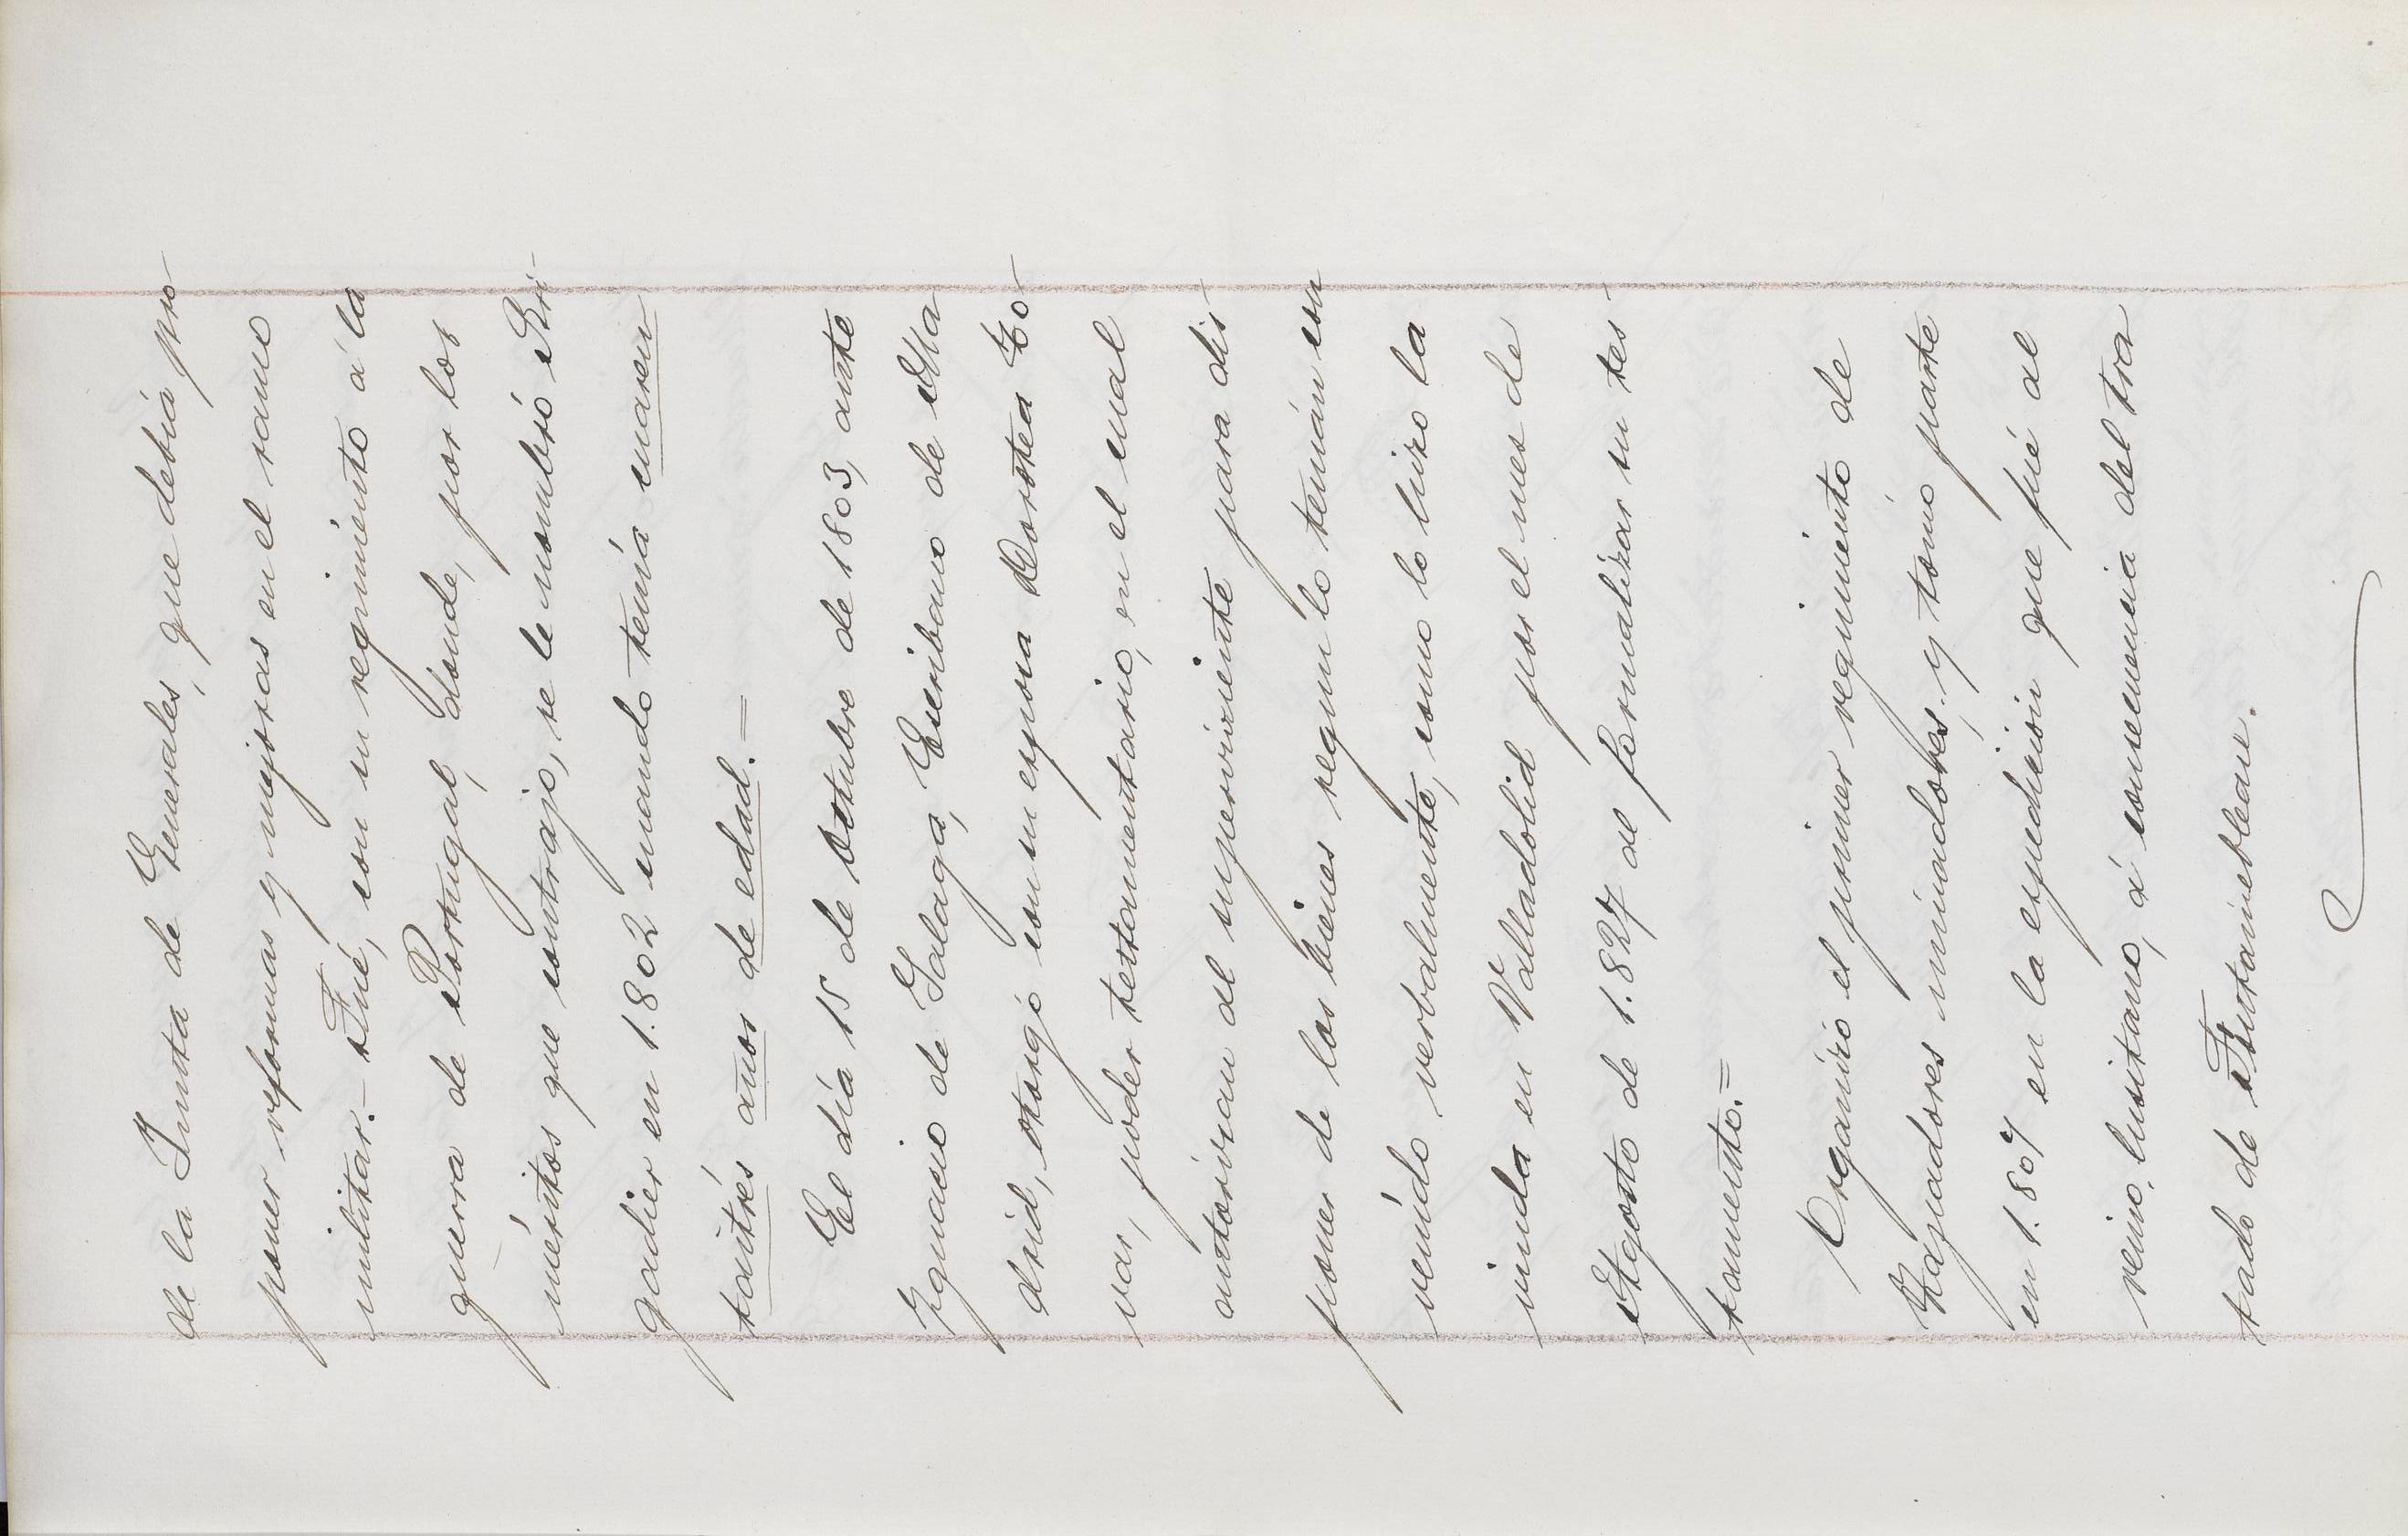 de la Junta de Generales, que debía pro
poner reformas y mejoras en el ramo
militar.- Fué, con su regimiento á la
guerra de Portugal, donde, por los
méritos que contrajo, se le nombró Bri-
gadier en 1.802 cuando tenía cuaren
taitrés años de edad.=
El día 15 de Octubre de 1803, ante
Ignacio de Salaga, Escribano de Ma
drid, otorgó con su esposa Dorotea To-
var, poder testamentario, en el cual
autorizan al superviviente para dis-
poner de los bienes segun lo tenían con
venido verbalmente, como lo hizo la
viuda en Valladolid por el mes de
Agosto de 1.827 al formalizar su tes-
tamento.=
Organizó el primer regimiento de
Zapadores minadores; y tomó parte
en 1.807 en la expedición que fué al
reino, lusitano, á consecuencia del tra
tado de Fontainebleau.